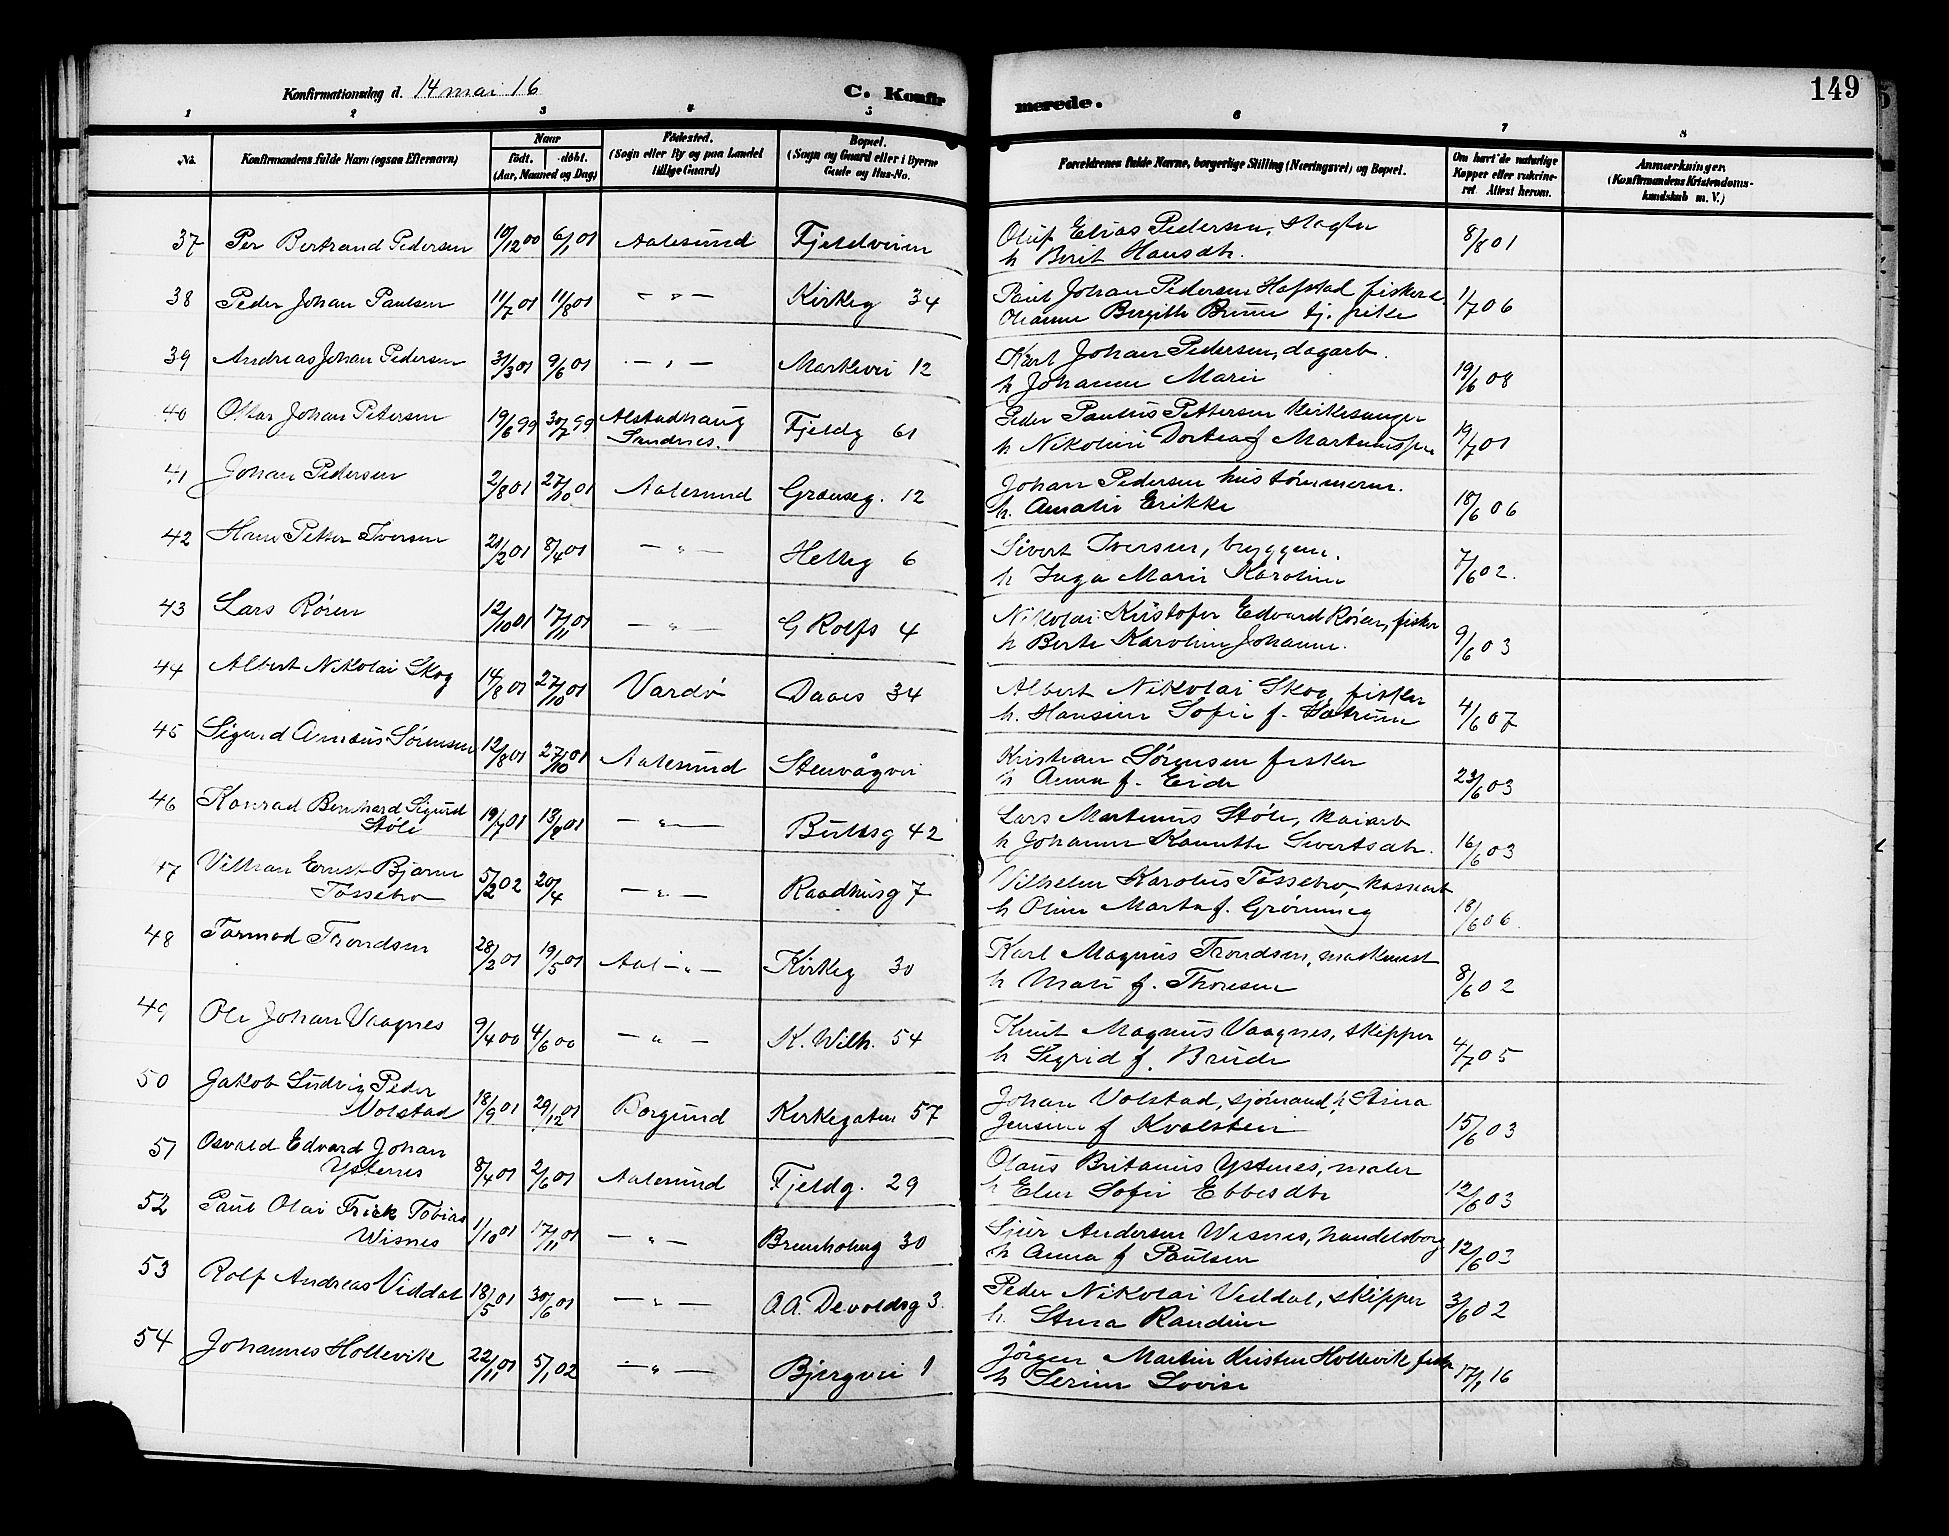 149
Konfirmationsdag d. 14 mai 16
C. Konfirmerede.
1 2 3 4 5 6 7 8
No. Konfirmandens fulde Navn (ogsaa Efternavn) Naar født. døbt. (Aar, Maaned og Dag) Fødested. (Sogn eller By og paa Landet tillige Gaard) Bopæl. (Sogn og Gaard eller i Byerne Gade og Hus-No. Forældrenes fulde Navne, borgerlige Stilling (Næringsvei) og Bopæl. Om havt de naturlige Kopper eller vakcineret. Attest herom. Anmærkninger. (Konfirmandens Kristendomskundskab m. V.)
37 Per Bertrand Pedersen 10/12 00 6/1 01 Aalesund Fjeldveien Oluf Elias Pedersen, slagter 8/8 01
h Berit Hansdtr.
38 Peder Johan Paulsen 11/7 01 11/8 01 — " — Kirkeg 34 Paul Johan Pedersen Hafstad fisker &. 1/7 06
Oleanne Bergitte Brune tj. pike
39 Andreas Johan Pedersen 31/3 01 9/6 01 — " — Markevei 12 Karl Johan Pedersen, dagarb. 19/6 08
h Johanne Marie
40 Ottar Johan Petersen 19/6 99 30/7 99 Alstadhaug Sandnes. Fjeldg 61 Peder Paulus Pettersen Kirkesanger 19/7 01
h Nikoline Dortea f Martinussen
41 Johan Pedersen 2/8 01 27/10 01 Aalesund Grænseg. 12 Johan Pedersen hustømmerm. 18/6 06
h. Amalie Erikke
42 Hans Petter Iversen 21/2 01 8/4 01 — " — Helleg 6 Sivert Iversen, byggem. 7/6 02.
h Inga Marie Karoline
43 Lars Røren 12/10 01 17/11 01 — " — G Rolfs 4 Nikolai Kristofer Edvard Røren, fisker 9/6 03
h Berte Karoline Johanne.
44 Albert Nikolai Skog 14/8 01 27/10 01 Vardø Daaes 34 Albert Nikolai Skog, fisker 4/6 07
h. Hansine Sofie f.
45 Sigurd Amæus Sørensen 12/8 01 27/10 01 Aalesund Stenvågvei Kristian Sørensen fisker 23/6 03
h Anna f. Eide
46 Konrad Bernhard Sigurd Støle 19/7 01 13/8 01 — " — Bulldsg 42 Lars Martinus Støle, kaiarb 16/6 03
h Johanne Kanutte Sivertsdtr.
47 Ernst Bjarne Tossebro 5/2 02 20/4 — " — Raadhusg 7 Vilhelm Karolus Tossebro, 18/6 06.
h Oline Marta f. Grønning
48 Tormod Trondsen 28/2 01 19/5 01 Aal — " — Kirkeg 30 Karl Magnus Trondsen, maskinist 8/6 02
h Mali f. Thoresen
49 Ole Johan Vaagnes 9/4 00 4/6 00 — " — K. Wilh. 54 Knut Magnus Vaagnes, skipper 4/7 05
h Sigrid f. Brude
50 Jakob Ludvig Peder Volstad 18/9 01 29/12 01 Borgund Kirkegaten 57 Johan Volstad, sjømand, h Stina 15/6 03
Jensine f Kvalstein
51 Osvald Edvard Johan Ystenes 8/4 01 2/6 01 Aalesund Fjeldg. 29 Olaus Britanus Ystenes, maler 12/6 03
h Elen Sofie Ebbesdtr
52 Paul Olai Frick Tobias Wisnes 1/10 01 17/11 01 — " — Brunholmg 30 Sjur Andersen Wisnes, handelsborg 12/6 03
h Anna f Paulsen
53 Rolf Andreas Viddal 18/5 01 30/6 01 — " — O.A. Devoldsg 3. Peder Nikolai Viddal, skipper 3/6 02
h. Stina Randine
54 Johannes Hollevik 22/11 01 5/1 02 — " — Bjergvei 1 Jørgen Martin Kristen Hollevik fisker 17/1 16
h Serine Lovise